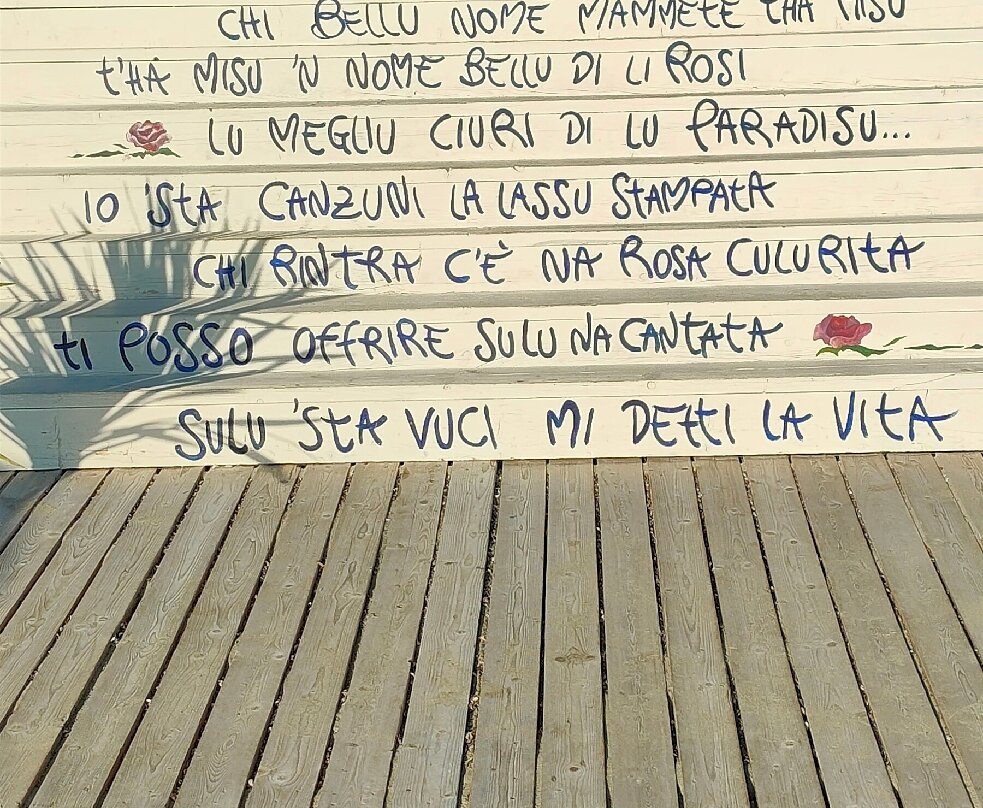 CHI BELLU NOME MAMMETE T'HA MISU
T'HA MISU 'N NOME BELLU DI LI ROSI
LU MEGLIU CIURI DI LU PARADISU...
IO 'STA CANZUNI LA LASSU STAMPATA
CHI RINTRA C'È NA ROSA CULURITA
TI POSSO OFFRIRE SULU NA CANTATA
SULU 'STA VUCI MI DETTI LA VITA